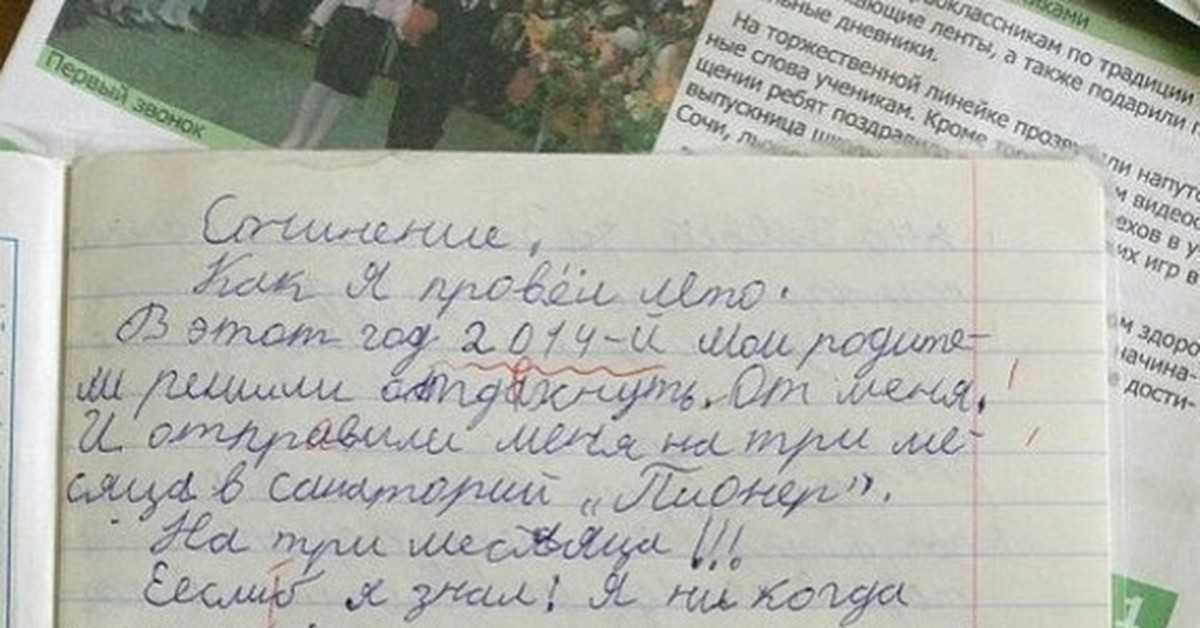 Первый звонок
оклассникам по традиции
ающие ленты, а также подарили
льные дневники.
На торжественной линейке
ные слова ученикам. Кроме
щении ребят
выпускница
Сочи,
напут
видео
ехов в у
их игр в
м здоро
начина-
дости-
Сочинение,
Как Я провёл лето.
В этот год 2014-й мои родите-
ли решили отдахнуть. От меня.
И отправили меня на три ме-
сяца в санаторий „Пионер".
На три месяяца!!!
Ееслиб я знал! Я ни когда
1